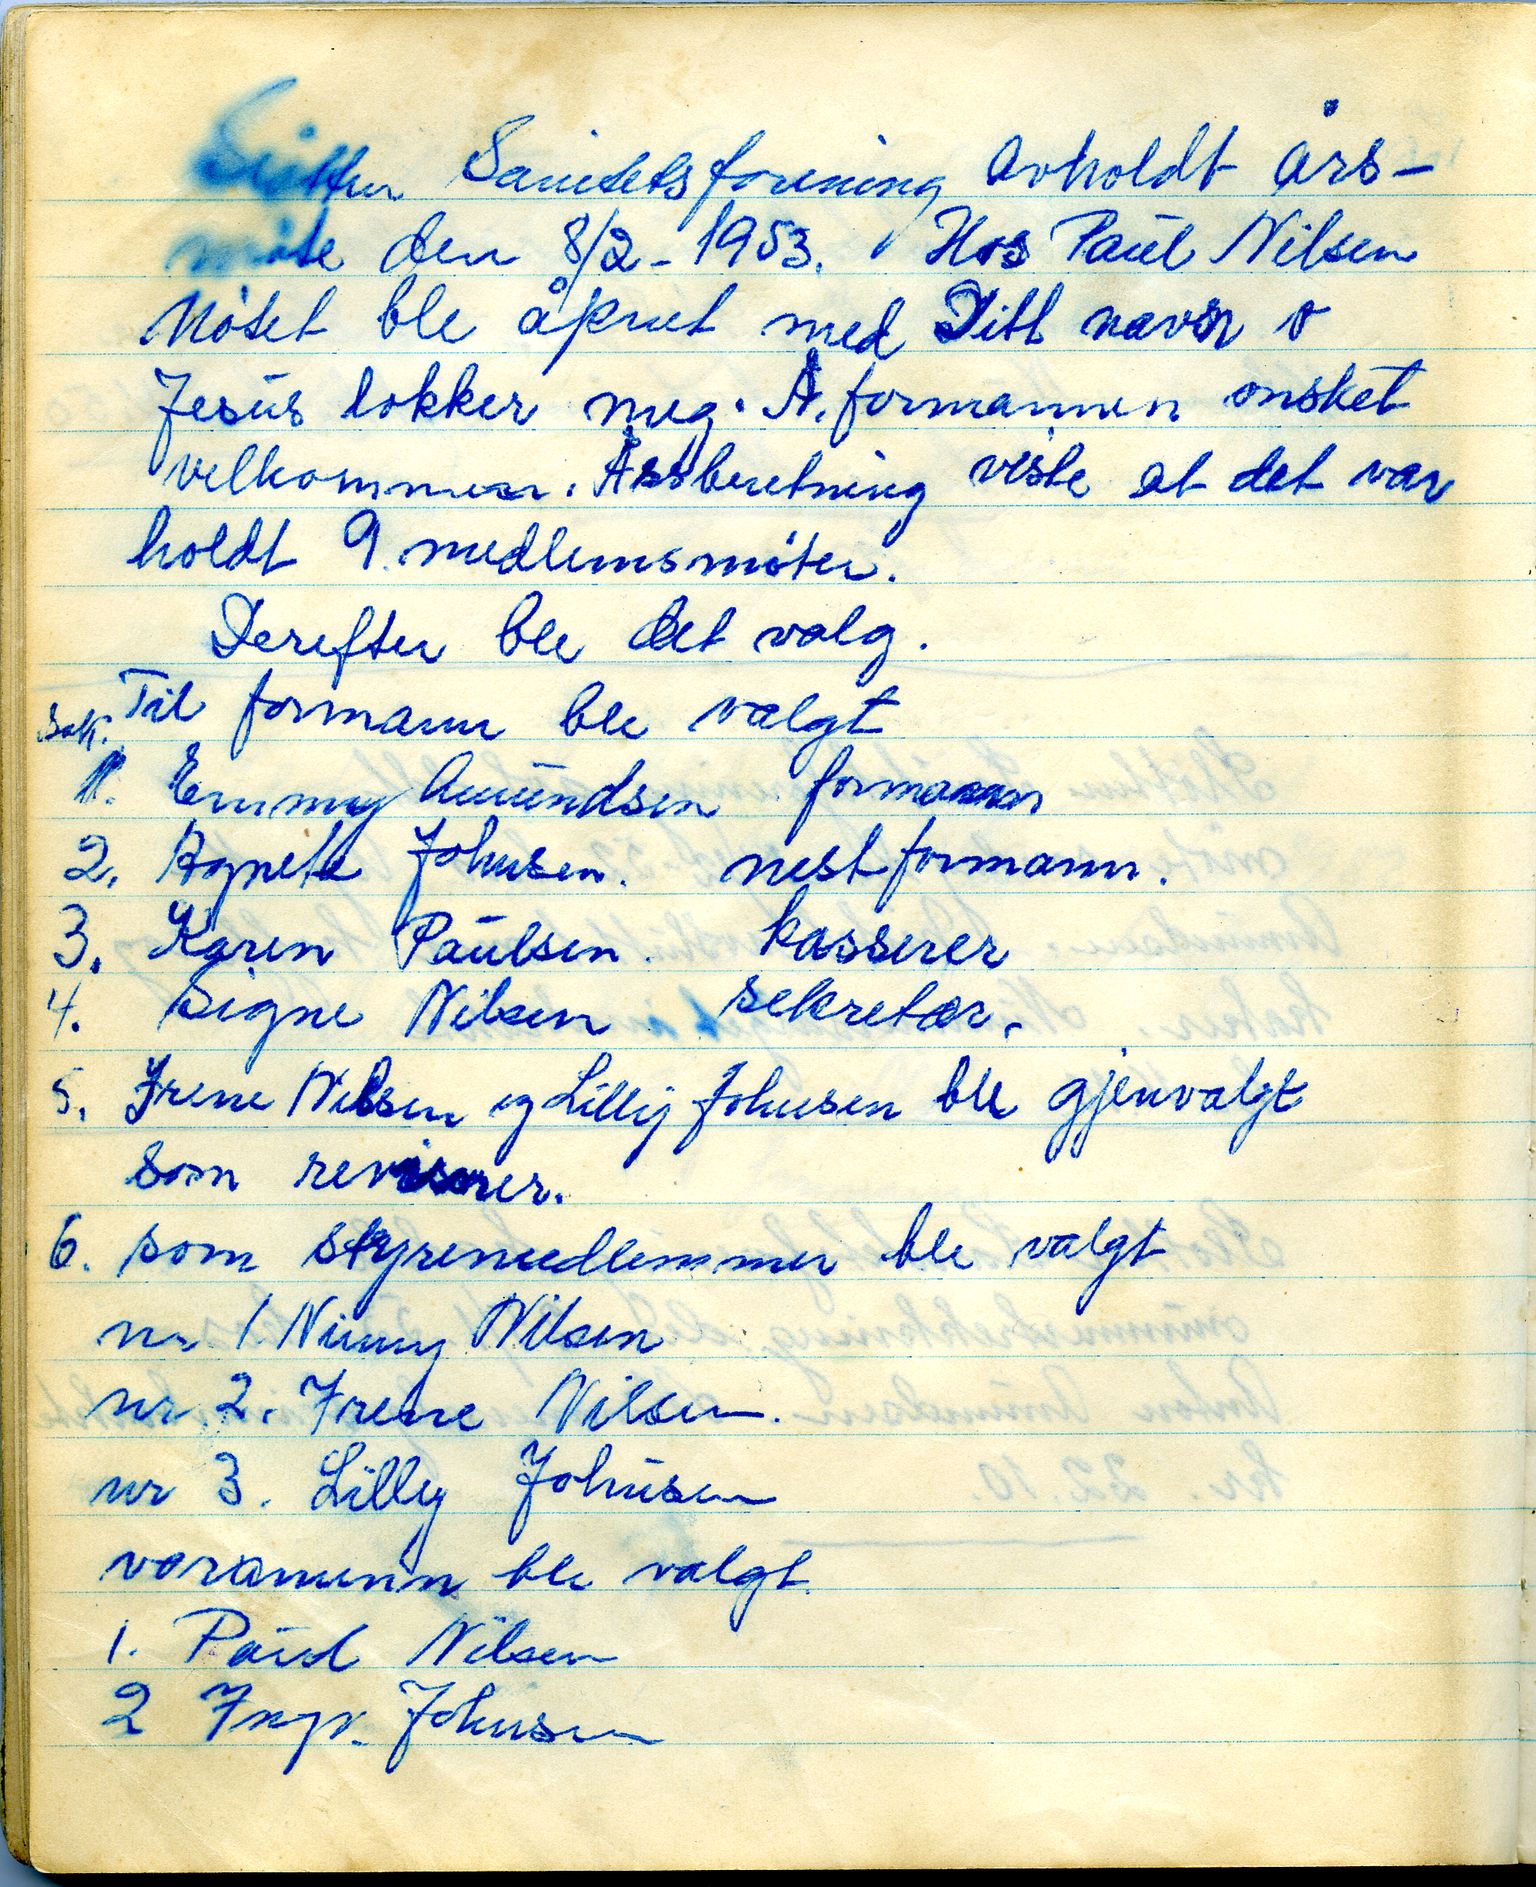 Sanitetsforening avholdt års-
møte den 8/2-1953. Hos Paul Nilsen
Møtet ble åpnet med Ditt navn o
Jesus lokker meg. N. formannen ønsket
velkommen. Årsberetning viste at det var
holdt 9 medlemsmøter.
Derefter ble det valg.
Til formann ble valgt
Sak.
1. Emmy Amundsen formann
2. Agnete Johnsen. nestformann.
3. Karen Paulsen. kasserer
4. Signe Nilsen sekretær.
5. Irene Nilsen og Lilly Johnsen ble gjenvalgt
som revisorer.
6. som styremedlemmer ble valgt
nr 1 Ninny Nilsen
nr 2. Irene Nilsen.
nr 3. Lilly Johnsen
varamenn ble valgt.
1. Paul Nilsen
2 Ingv. Johnsen